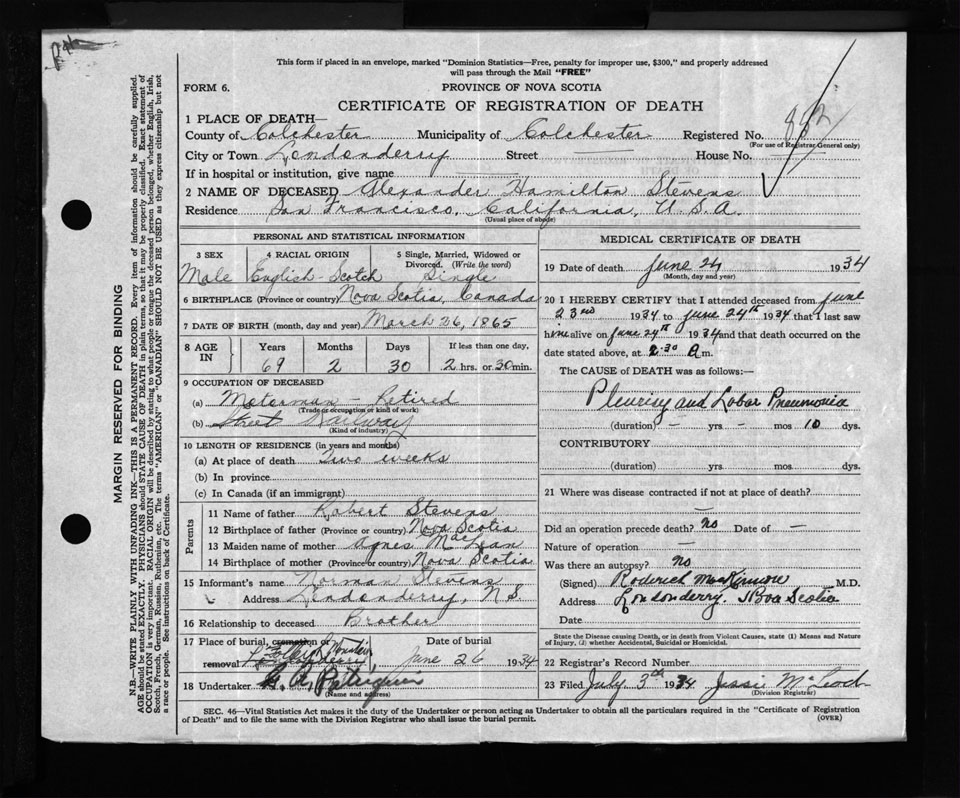 This form if placed in an envelope, marked "Dominion Statistics—Free, penalty for improper use, $300," and properly addressed
will pass through the Mail "FREE"
FORM 6. PROVINCE OF NOVA SCOTIA
CERTIFICATE OF REGISTRATION OF DEATH
1 PLACE OF DEATH—
County of Colchester Municipality of Colchester Registered No.
(For use of Registrar General only)
City or Town Londonderry Street House No.
If in hospital or institution, give name
2 NAME OF DECEASED Alexander Hamilton Stevens
Residence San Francisco, California, U.S.A.
(Usual place of abode)
PERSONAL AND STATISTICAL INFORMATION
3 SEX 4 RACIAL ORIGIN 5 Single, Married, Widowed or
Divorced. (Write the word)
Male English-Scotch Single
6 BIRTHPLACE (Province or country) Nova Scotia, Canada
7 DATE OF BIRTH (month, day and year) March 26, 1865
8 AGE IN Years Months Days If less than one day,
69 2 30 2 hrs. or 30 min.
9 OCCUPATION OF DECEASED
(a) Moterman - Retired
(Trade or occupation or kind of work)
(b) Street Railway
(Kind of industry)
10 LENGTH OF RESIDENCE (in years and months)
(a) At place of death Two weeks
(b) In province
(c) In Canada (if an immigrant)
Parents
11 Name of father Robert Stevens
12 Birthplace of father (Province or country) Nova Scotia
13 Maiden name of mother Agnes MacLean
14 Birthplace of mother (Province or country) Nova Scotia
15 Informant's name Norman Stevens
Address Londonderry, N.S.
16 Relationship to deceased Brother
17 Place of burial, cremation or Date of burial
removal Mountain June 26 1934
18 Undertaker
(Name and address)
MEDICAL CERTIFICATE OF DEATH
19 Date of death June 24 1934
(Month, day and year)
20 I HEREBY CERTIFY that I attended deceased from June
23rd 1934 to June 24th 1934 that I last saw
him alive on June 24th 1934 and that death occurred on the
date stated above, at 2.30 a m.
The CAUSE of DEATH was as follows:—
Pleurisy and Lobar Pneumonia
(duration) - yrs. - mos 10 dys.
CONTRIBUTORY
(duration) yrs. mos. dys.
21 Where was disease contracted if not at place of death?
Did an operation precede death? no Date of —
Nature of operation —
Was there an autopsy? no
(Signed) Roderick MacKinnon M.D.
Address Londonderry. Nova Scotia
Date
State the Disease causing Death, or in death from Violent Causes, state (1) Means and Nature
of Injury, (2) whether Accidental, Suicidal or Homicidal.
22 Registrar's Record Number
23 Filed July 3rd 1934 Jessie McLeod
(Division Registrar)
SEC. 46—Vital Statistics Act makes it the duty of the Undertaker or person acting as Undertaker to obtain all the particulars required in the "Certificate of Registration
of Death" and to file the same with the Division Registrar who shall issue the burial permit. (OVER)
MARGIN RESERVED FOR BINDING
N.B.—WRITE PLAINLY WITH UNFADING INK—THIS IS A PERMANENT RECORD. Every item of information should be carefully supplied.
AGE should be stated EXACTLY. PHYSICIANS should STATE CAUSE OF DEATH in plain terms, so that it may be properly classified. Exact statement of
OCCUPATION is very important. RACIAL ORIGIN will be described by stating to what people or tongue the deceased person belonged, whether English, Irish,
Scotch, French, German, Russian, Ruthenian, etc. The terms "AMERICAN" or "CANADIAN" SHOULD NOT BE USED as they express citizenship but not
a race or people. See instructions on back of Certificate.